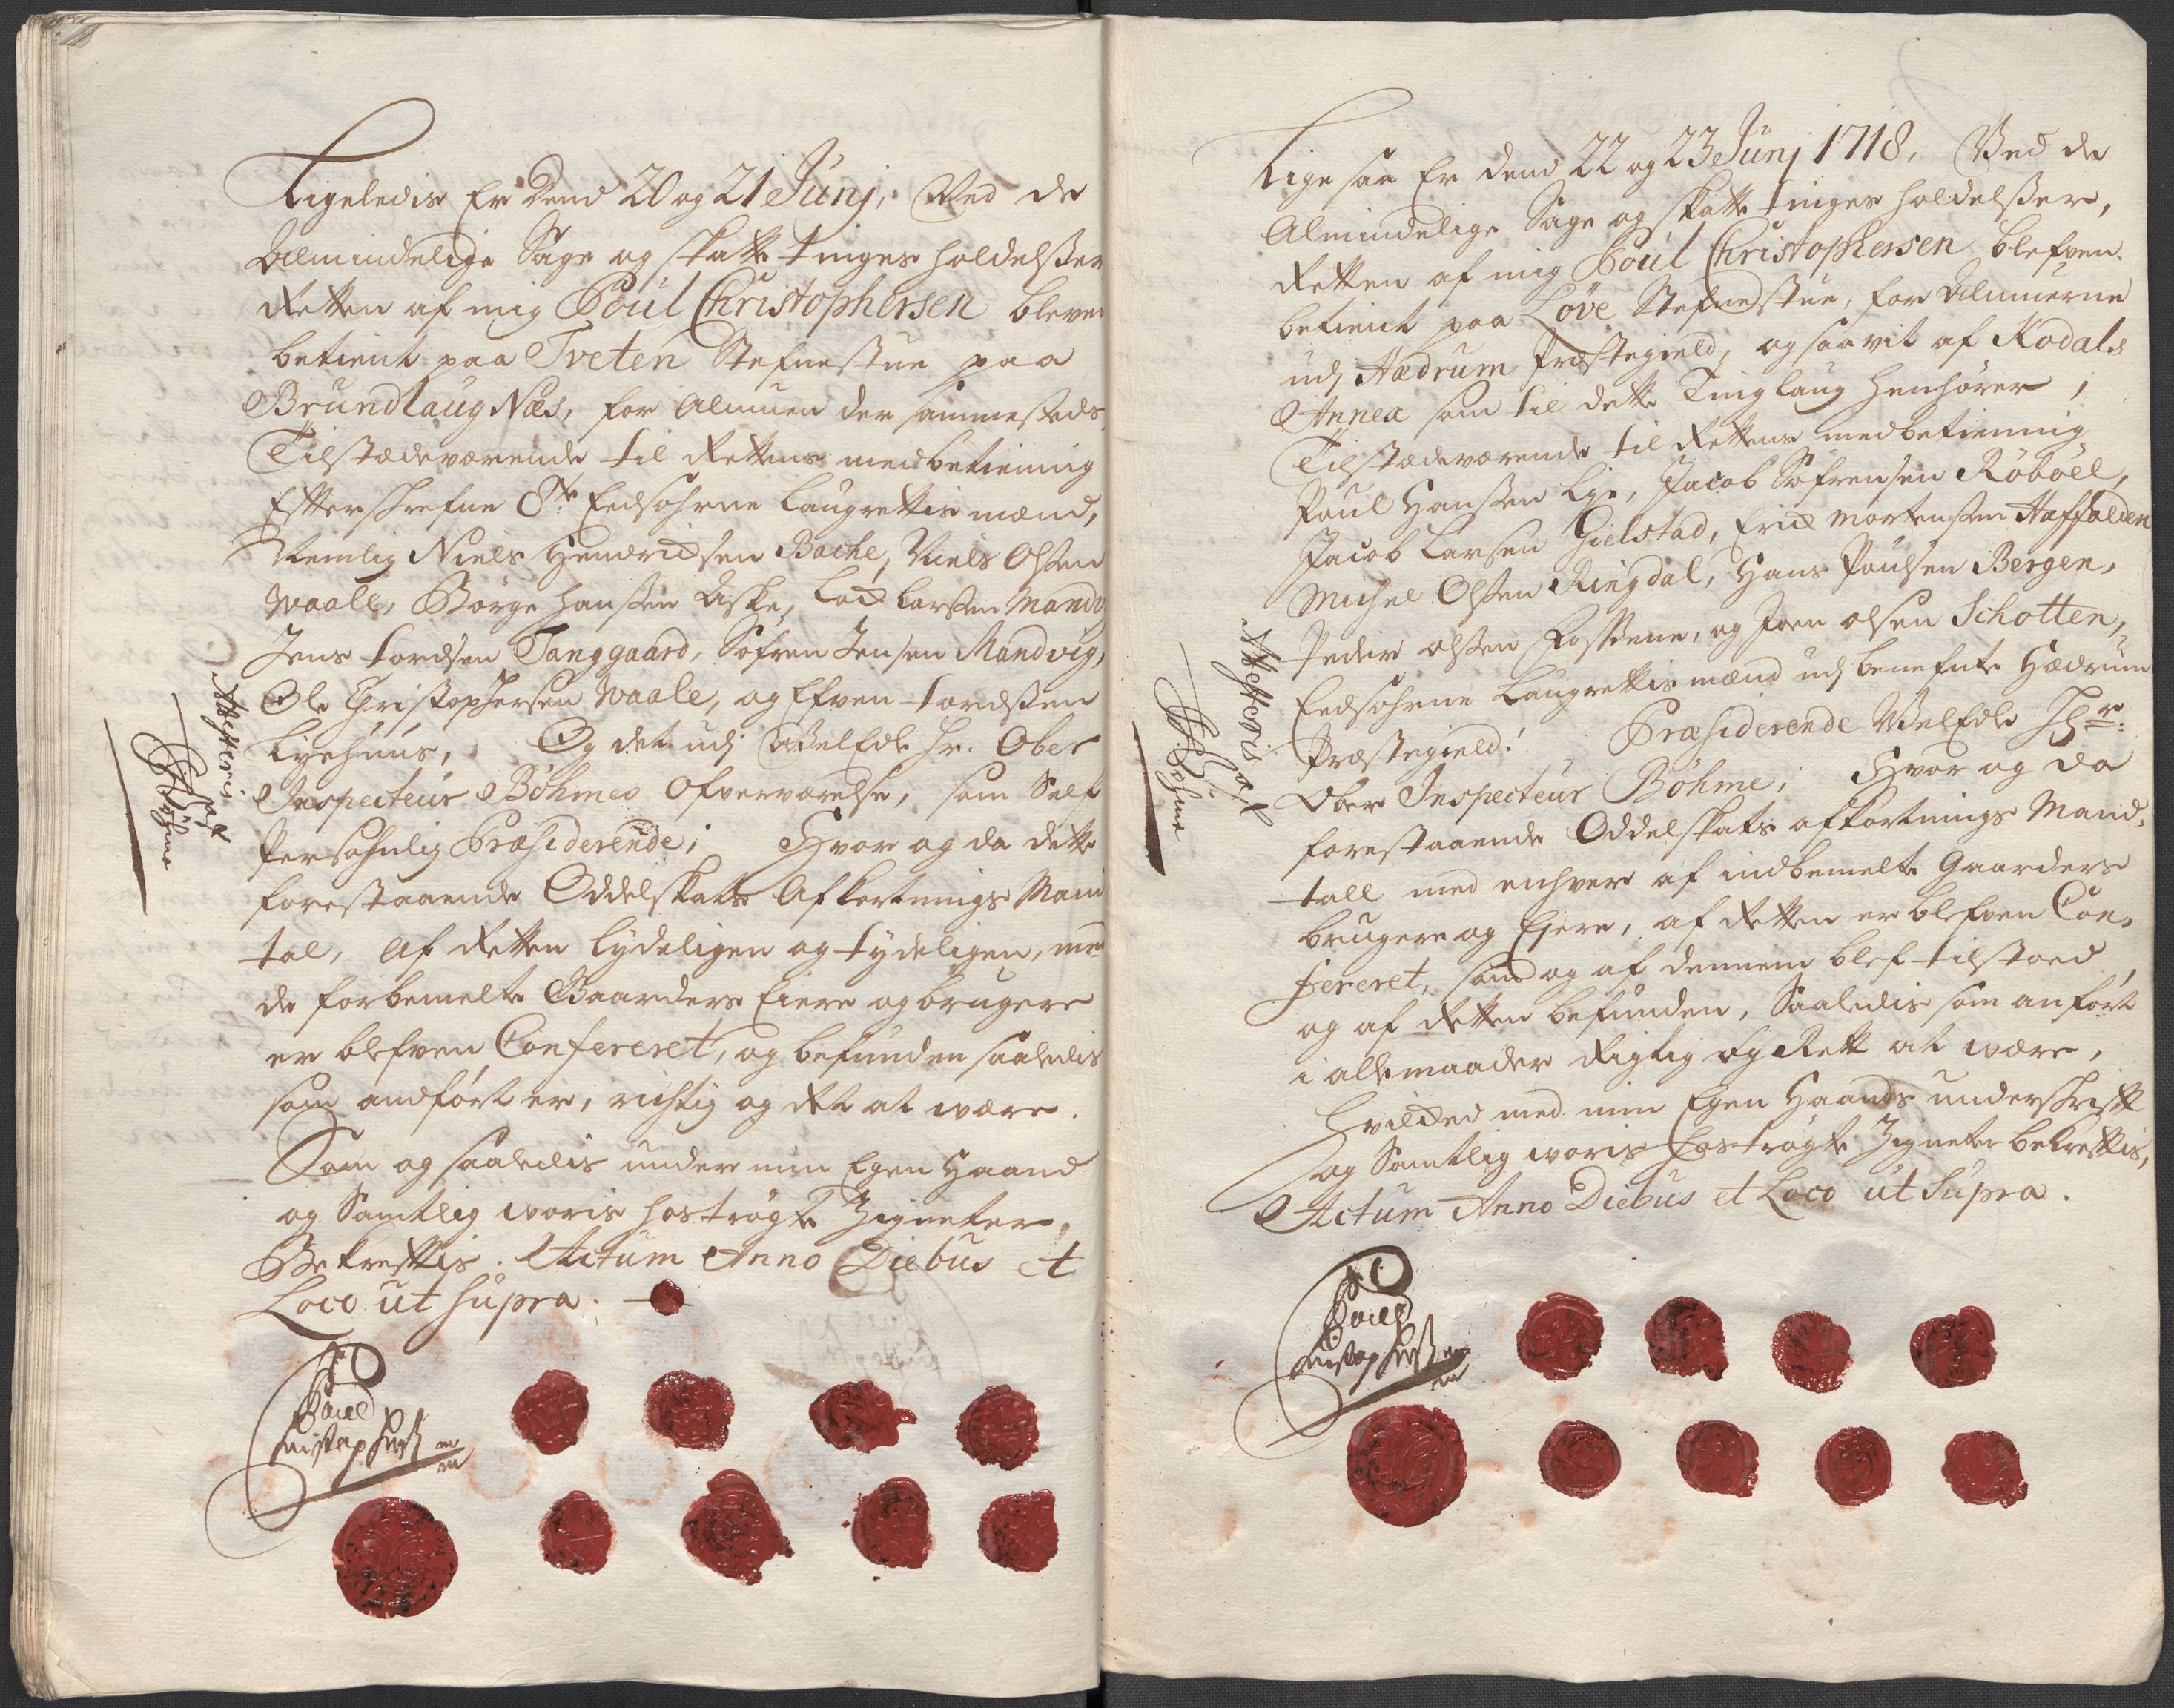 Ligeledis Er Dend 20 og 21 Junj, Ved de
Almindelige Sage og skatte tinges holdelsser
Retten af mig Poul Christophersen bleven
betient paa Tveten Stefnestue paa
Brundlaug Næs, for Almuen der sammesteds
Tilstædeværende til Rettens medbetiening
Efterschrefne 8te Eedsohrne Laugrettis mænd,
Nemlig Niels Hendrichsen Bache, Niels Olssen
Waale, Börge Hanssen Aske, Lars Larssen Mandv
Jens tordsen Tanggaard, Söfren Jensen Mandvig,
Ole Christophersen Waale, og Efven tordssen
Lyehuus, Og det udj WelEdle Hr. Ober
Inspecteur Böhmes Ofverværelse, som Self
Persohnlig Præsiderende; Hvor og da dette
forestaaende Oddelskats Afkortnings Man
tal, Af Retten lydeligen og tydeligen, med
de forbemelte Gaarders Eiere og brugere
er blefven Confereret, og befunden saaledis
som andfört er, richtig og Ret at være.
Som og saaledis under min Egen Haand
og Samtlig woris hoströgte Zigneter,
Bekreftis. Actum Anno Diebus et
Loco ut supra.
Poul
Christophersen
Attesteris
Böhme
Lige saa Er dend 22 og 23 Junj 1718, Ved de
Almindelige Sage og skatte tinges holdelsser,
Retten af mig Poul Christophersen blefven
betient paa Löve Stefnestue, for Almuerne
udj Hædrum Præstegield, og saavit af Kodals
Annex som til dette Tinglaug henhörer,
Tilstædeværende til Rettens medbetiening
Poul Hanssen Lye, Jacob Söfrensen Röböel,
Jacob Larsen Gielstad, Erich Mortenssen Haffalden
Michel Olssen Ringdal, Hans Poulsen Bergen,
Peder olssen, og Joen olsen Schotten,
Eedsohrne Laugrettis mænd udj benefnte Hædrum
Præstegield. Præsiderende WelEdle Hr.
Ober Inspecteur Böhme; Hvor og da
forestaaende Oddelskats afkortnings Mand-
tall med enhver af indbemelte Gaarders
brugere og Ejere, af Retten er blefven Con-
fereret, som og af dennem blef tilstaaed
og af Retten befunden, Saaledis som anfört
i alle maader Rigtig og Rett at være,
Hvilcked med min Egen Haands underschrift
og Samtlig woris hoströgte Zigneter bekreftis,
Actum Anno Diebus et Loco ut Supra.
Poul
Christophersen
Attesteris
Böhme